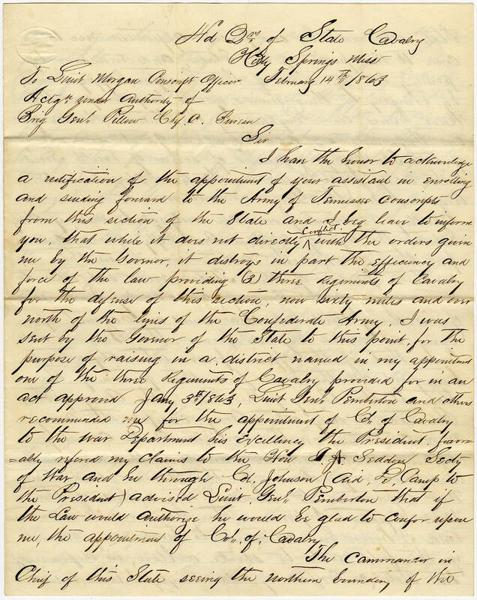 Hd Qrs of State Cavalry
Holly Springs Miss
February 14th 1863
To Lieut Morgan Conscript Officer
Actg under Authority of
Brig Genl Pillow Chf. C. Bureau
Sir
I have the honor to acknowledge
a notification of the appointment of your assistant in enrolling
and sending forward to the Army of Tennessee conscripts
from this section of the State and I beg leave to inform
you, that while it does not directly conflict with the orders given
me by the Governor, it destroys in part the efficiency and
force of the law providing (3) three regiments of Cavalry
for the defense of this section, now sixty miles and over
north of the lines of the Confederate Army. I was
sent by the Governor of the State to this point, for the
purpose of raising in a district named in my appointment
one of the three Regiments of Cavalry provided for in an
act approved Jany 3rd 1863. Lieut Genl Pemberton and others
recommended me for the appointment of Col of Cavalry
to the War Department his Excellency the President favor
=ably referd my claims to the Hon J A Seddon Secty
of War and he through Col. Johnson (Aid De Camp to
the President) advised Lieut. Genl Pemberton that if
the Law would Authorize he would be glad to confer upon
me, the appointment of Col. of Cavalry
The Commander in
Chief of this State seeing the northern boundary of the